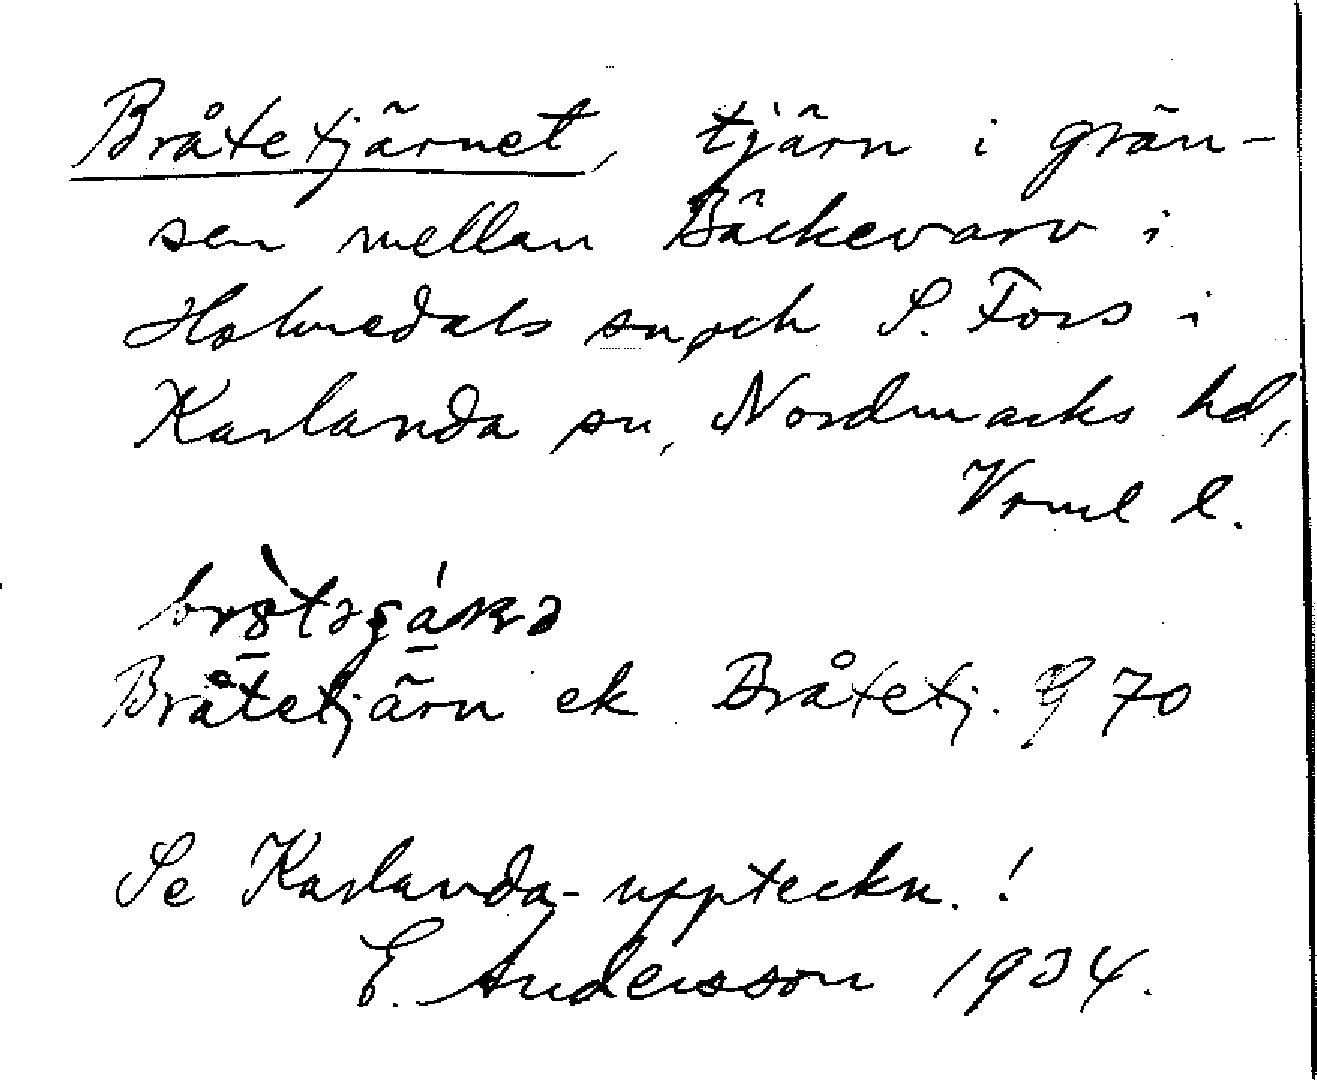 Bråtetjärnet, tjärn i grän-
sen mellan Bäckevarv i
Holmedals sn och S. Fors i
Karlanda sn, Nordmarks hd,
Vrml l.
Bråtetjärn ek Bråtetj. G 70
Se Karlanda-uppteckn.!
E. Andersson 1934.